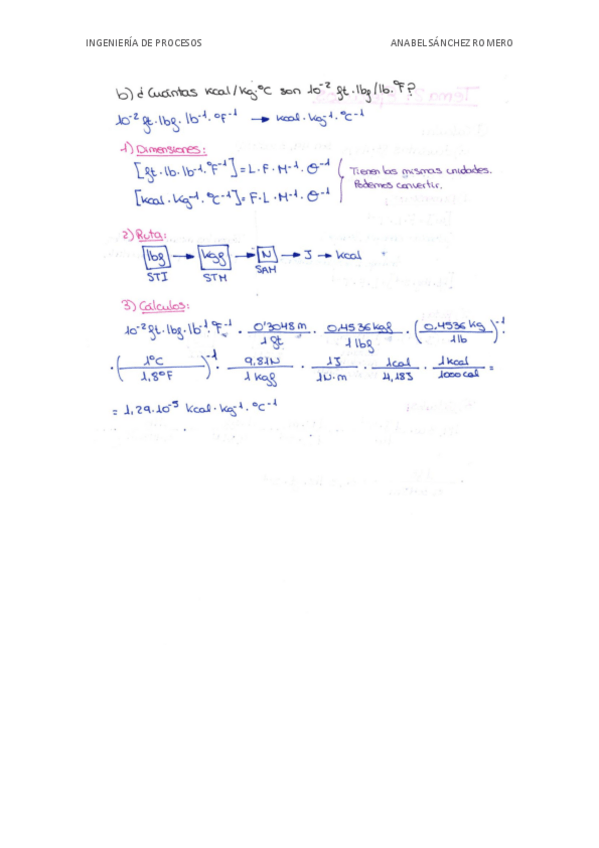 INGENIERÍA DE PROCESOS ANABEL SÁNCHEZ ROMERO
b) ¿Cuántas kcal/kg·ºC son 10⁻² ft·lbf/lb·ºF?
10⁻² ft·lbf·lb⁻¹·ºF⁻¹ → kcal·kg⁻¹·ºC⁻¹
1) Dimensiones:
[ft·lb·lb⁻¹·ºF⁻¹] = L·F·M⁻¹·Θ⁻¹ Tienen las mismas unidades.
[kcal·kg⁻¹·ºC⁻¹] = F·L·M⁻¹·Θ⁻¹ Podemos convertir.
2) Ruta:
lbf → kgf → N → J → kcal
STI STM SAM
3) Cálculos:
10⁻² ft·lbf·lb⁻¹·ºF⁻¹ · 0'3048 m / 1 ft · 0.4536 kgf / 1 lbf · (0.4536 kg / 1 lb)⁻¹ ·
· (1ºC / 1,8ºF)⁻¹ · 9,81 N / 1 kgf · 1J / 1N·m · 1cal / 4,18J · 1 kcal / 1000 cal =
= 1,29·10⁻⁵ kcal·kg⁻¹·ºC⁻¹